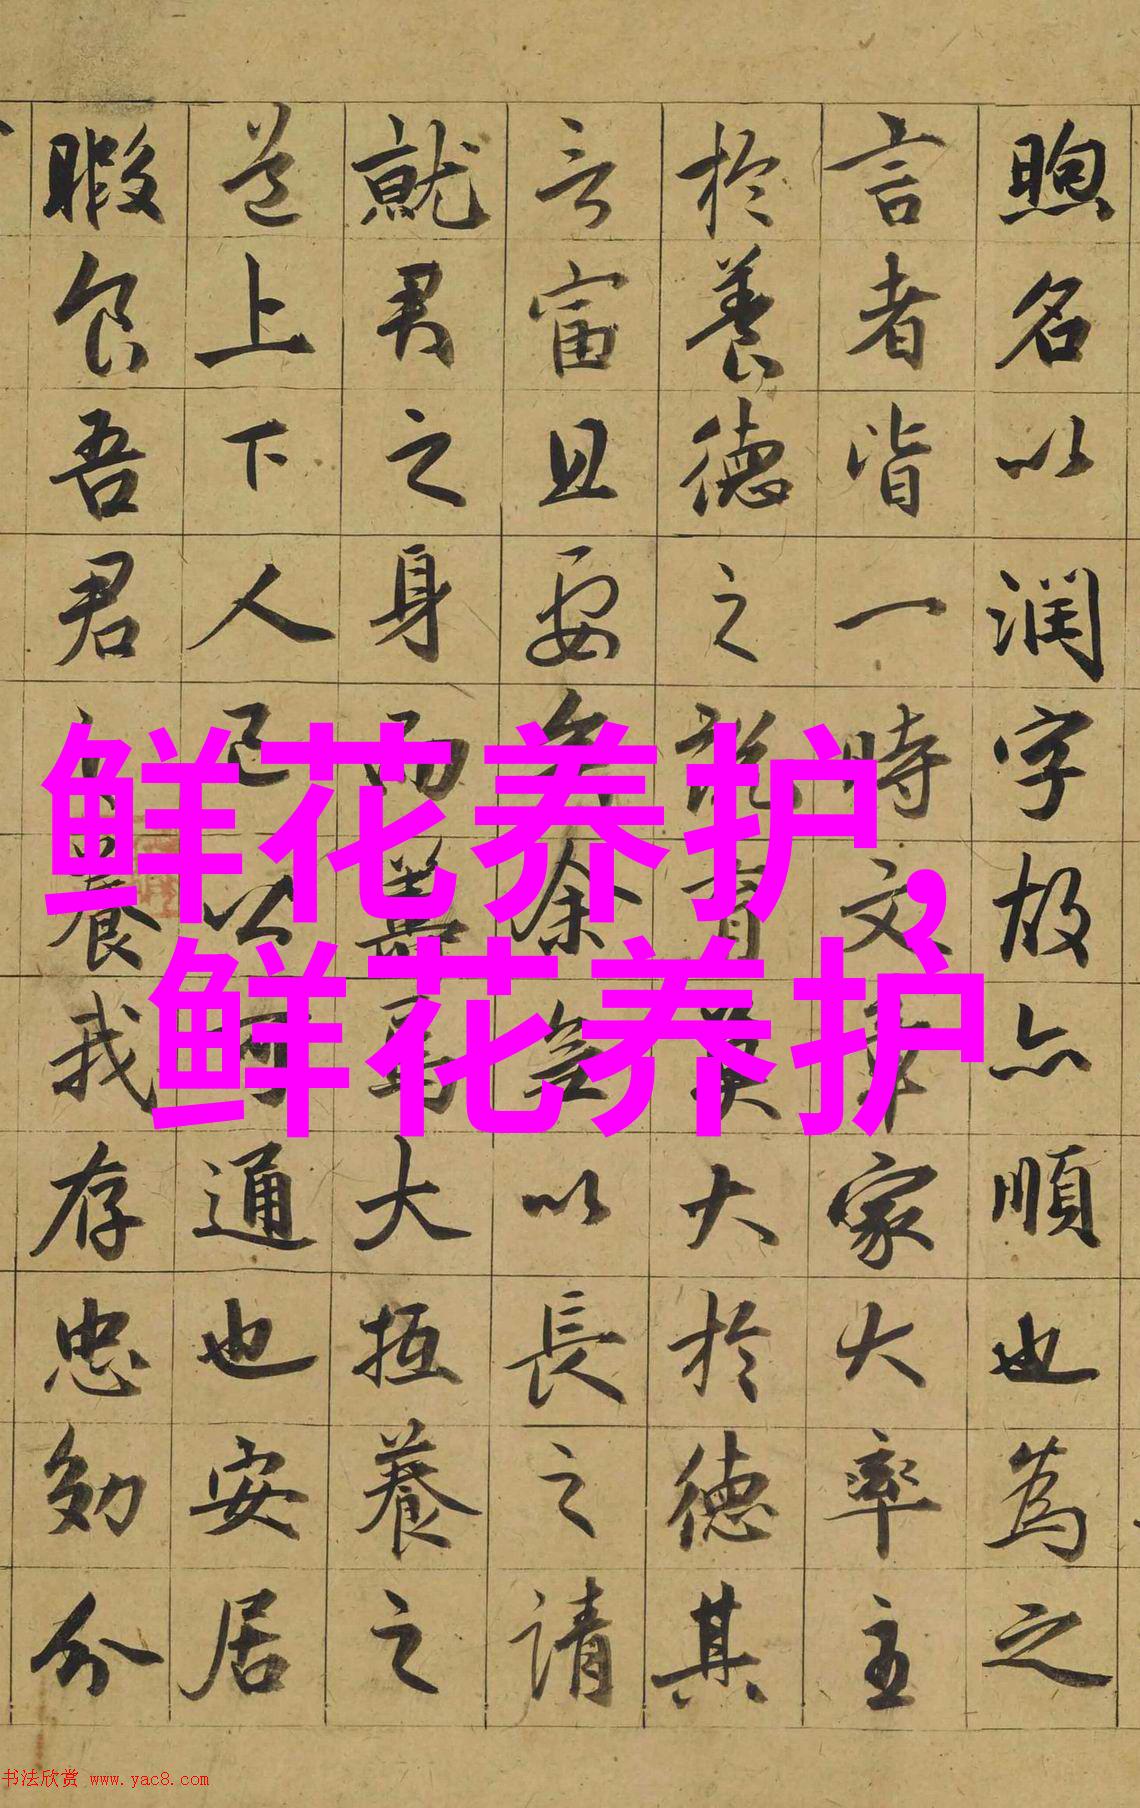 鲜花养护,
鲜花养护
煦名以潤字故亦順也為之
言者皆一時文章家大率主
於養德之說有莫大於德其
言富且要矣余以長之請
就君之身而大抵養之
道上下人己可通也安居
暇食吾君養我存忠効分
书法欣赏 www.yac8.com